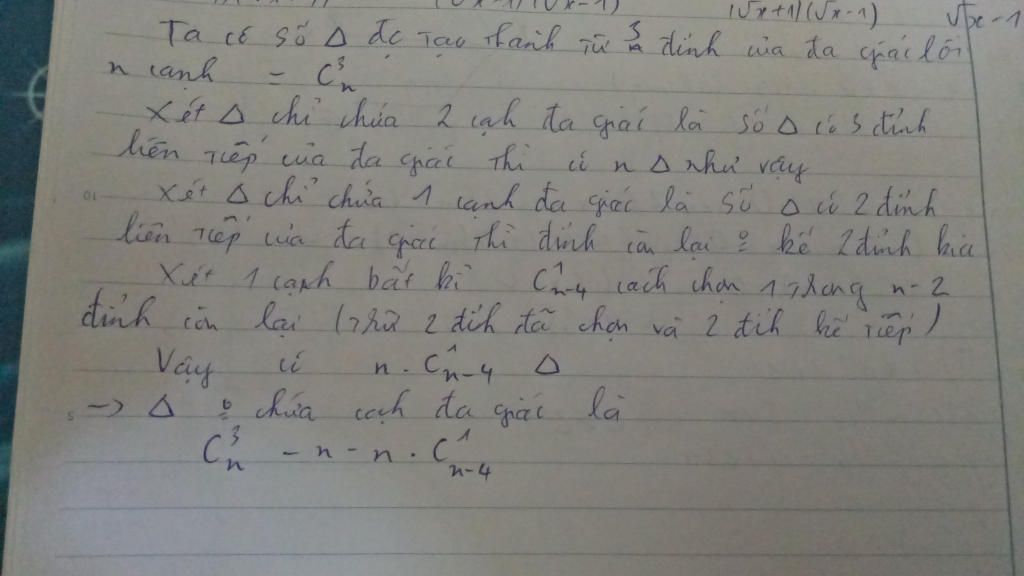 (√x+1)(√x-1) √x-1
Ta có số Δ đc tạo thành từ 3 đỉnh của đa giác lồi
n cạnh = C³ₙ
Xét Δ chỉ chứa 2 cạh đa giác là số Δ có 3 đỉnh
liên tiếp của đa giác thì có n Δ như vậy
Xét Δ chỉ chứa 1 cạnh đa giác là số Δ có 2 đỉnh
liên tiếp của đa giác thì đỉnh còn lại º kề 2 đỉnh kia
Xét 1 cạnh bất kì C¹ₙ₋₄ cách chọn 1 trong n-2
đỉnh còn lại (trừ 2 đỉh đã chọn và 2 đỉh kế tiếp)
Vậy có n. C¹ₙ₋₄ Δ
-> Δ º chứa cạh đa giác là
C³ₙ - n - n. C¹ₙ₋₄